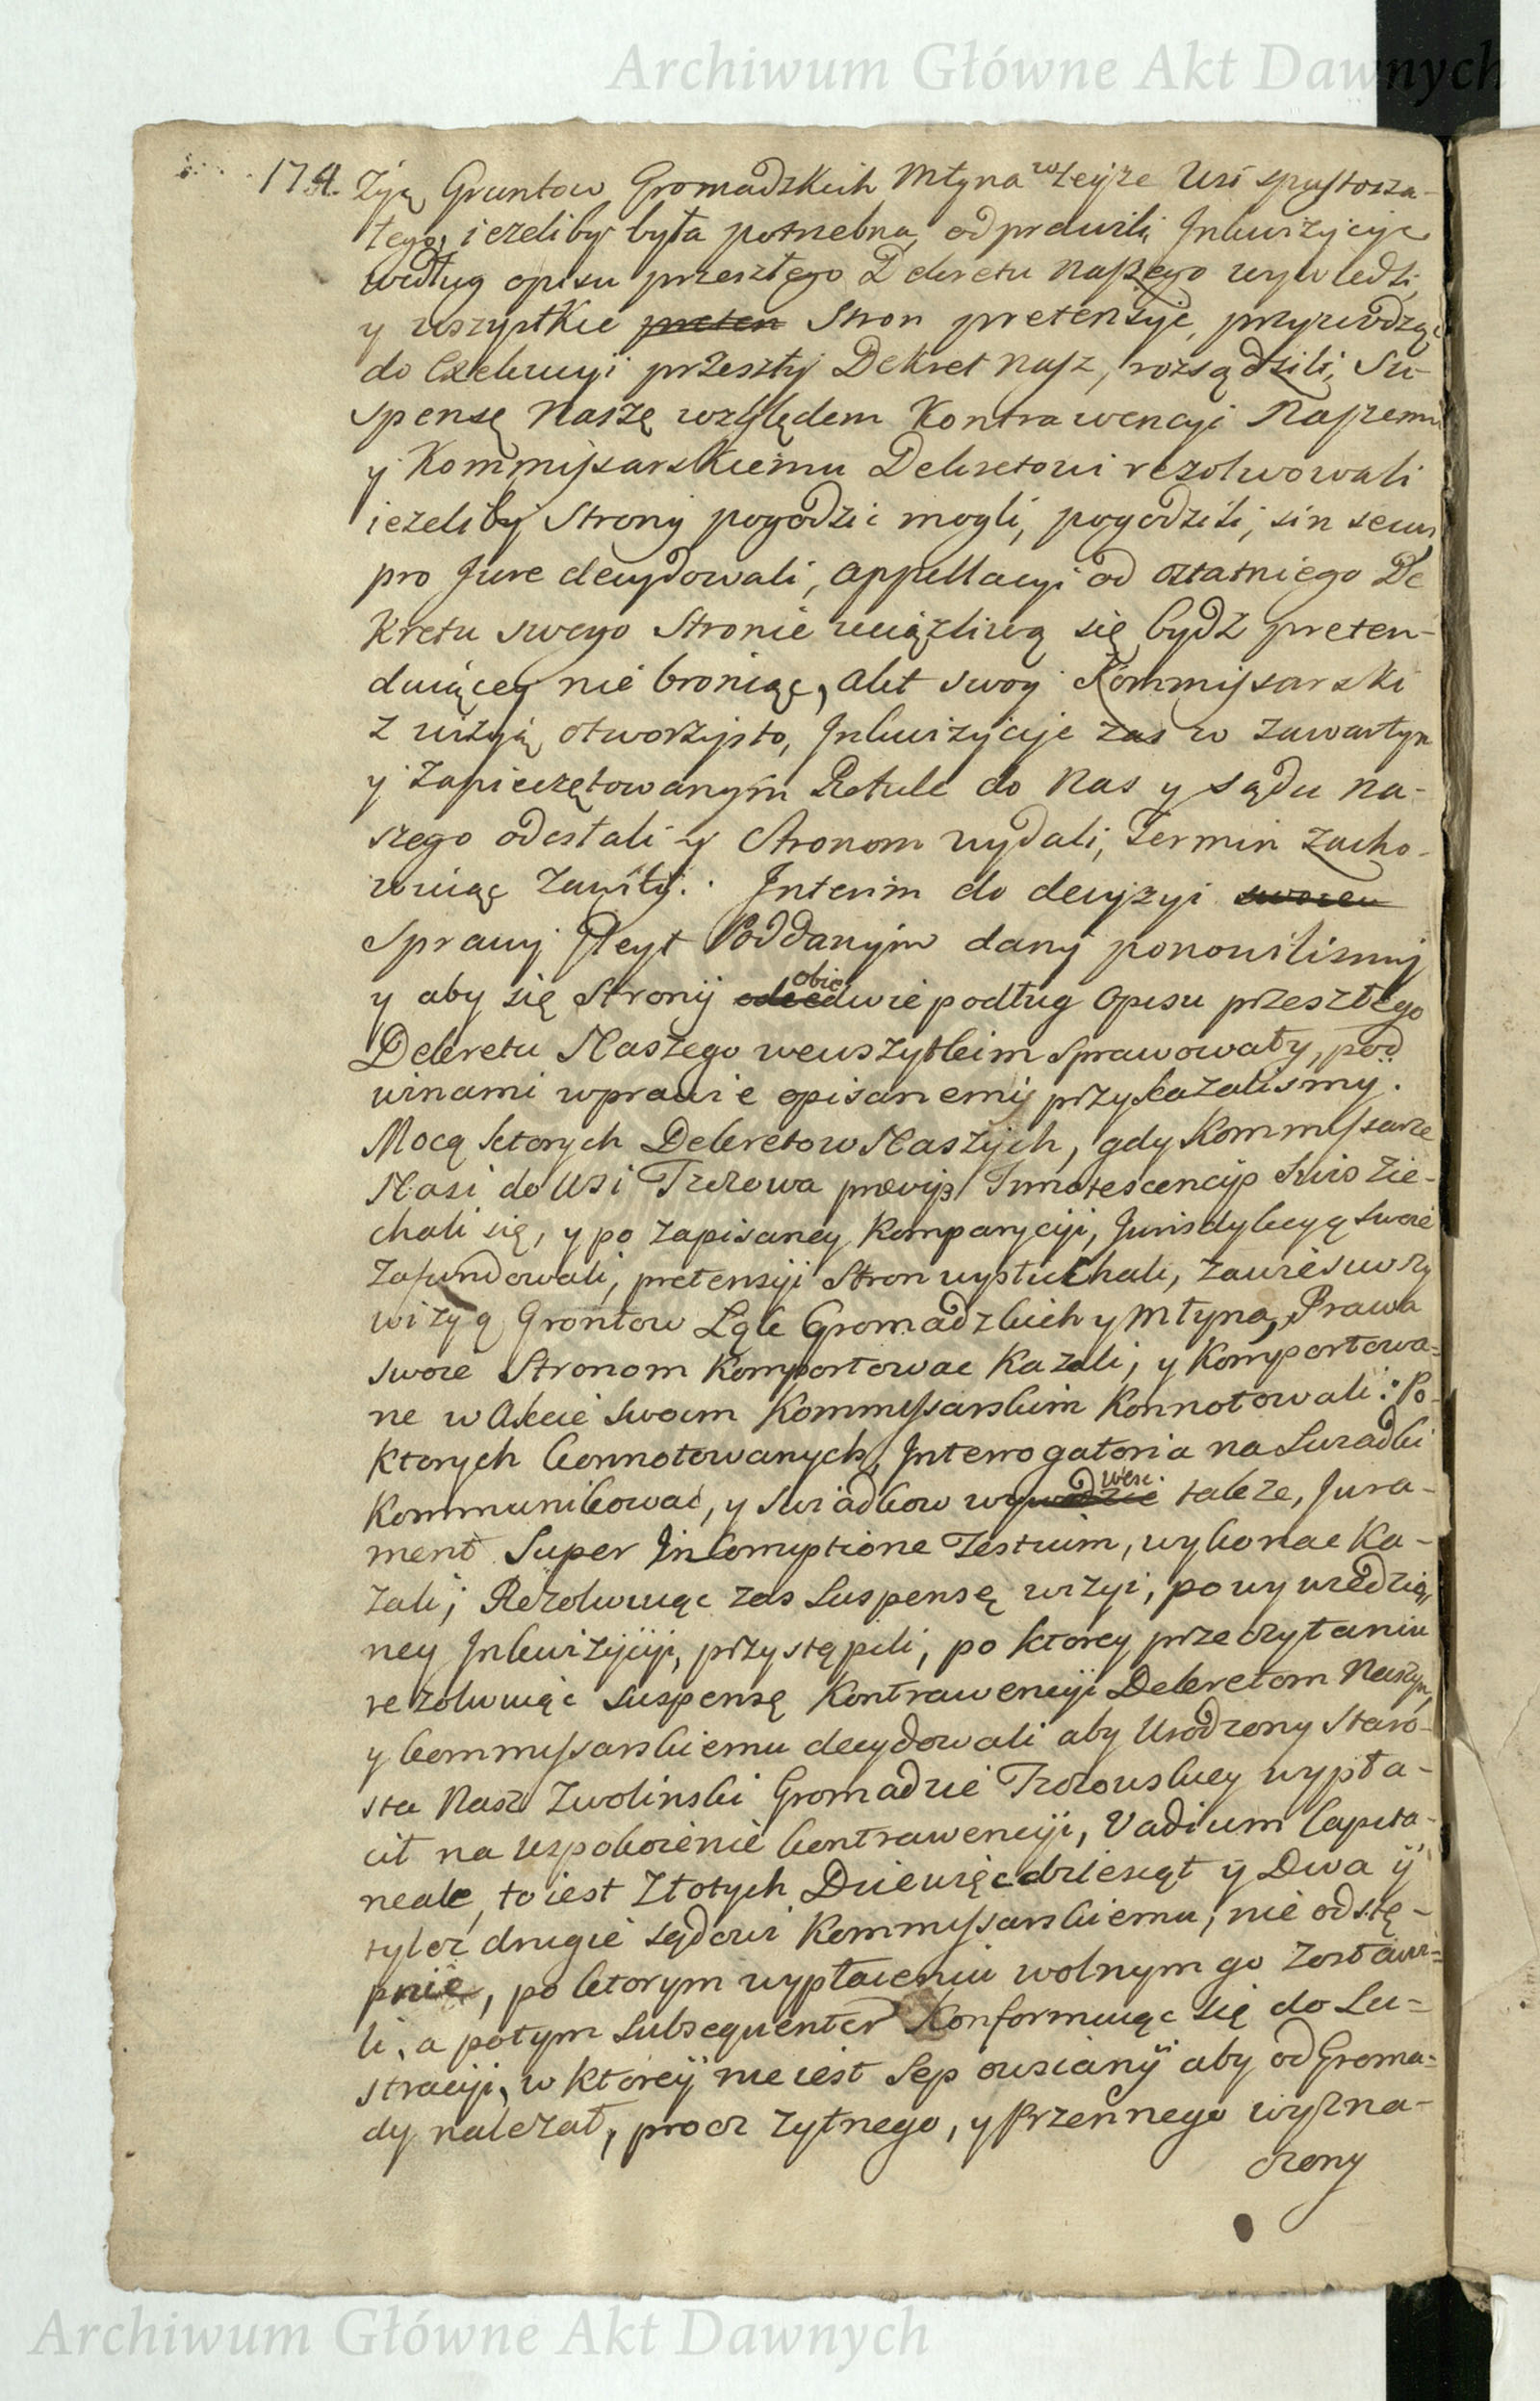 Archiwum Główne Akt Dawnych
174. Żyą Gruntow Gromadzkich Młyna w teyże Wsi spustosza-
łego, ieżeliby była potrzebna, odprawili, Inkwizycyje
według opisu przeszłego Dekretu naszego wywiedli,
y wszystkie preten Stron pretensyje, przywodząc
do Exekucyi przeszły Dekret nasz, rozsądzili, Su-
spensę Naszę względem Kontrawencyi Naszemu
y Kommissarskiemu Dekretowi rezolwowali
ieżeliby Strony pogodzić mogli, pogodzili, sin secus
pro Jure decydowali, appellacyi od ostatniego De
kretu swego Stronie uciążliwą się bydz preten-
duiącey nie broniąc, Akt swoy Kommissarski
z wizyią otworzysto, Inkwizycyje zas w zawartym
y zapieczętowanym Rotule do Nas y sądu na-
szego odesłali y Stronom wydali, Termin zacho-
wuiąc zawity. Interim do decyzyi swoien
Sprawy Gleyt Poddanym dany ponowilismy
y aby się Strony obie dwie podług Opisu przeszłego
Dekretu Naszego wewszytkim sprawowały, pod
winami wprawie opisanemi przykazalismy.
Mocą ktorych Dekretow Naszych, gdy Kommissarze
Nasi do Wsi Trzozowa prævijs Innotescencijs Suis zie-
chali się, y po zapisaney Komparycyi, Jurisdykcyą swoie
Zafundowali, pretensyi Stron wysłuchali, zawiesiwszy
wizyą Grontow Łąk Gromadzkich y Młyna, Prawa
swoie Stronom Komportowac Kazali, y Komportowa=
ne w Akcie swoim Kommissarskim Konnotowali: Po-
Ktorych konnotowanych, Interrogatoria na Swiadki
Kommunikować, y Swiadkow wywodzie wesc. także, Jura-
ment Super Incorruptione Testium, wykonac Ka-
zali; Rezolwuiąc zas Suspensę wizyi, po wywiedzio-
ney Inkwizycyi, przystąpili, po ktorey przeczytaniu
rezolwuiąc suspensę Kontrawencyi Dekretom Naszym,
y kommissarskiemu decydowali aby Urodzony Staro-
sta Nasz Zwolinski Gromadzie Trzozowskiey wypła-
cił na uspokoienie kontrawencyi, Vadium Capita-
neale, to iest Złotych Dziewięcdziesiąt y Dwa y
tyloż drugie sądowi Kommissarskiemu, nie odstę-
pnie, po ktorym wypłaceniu wolnym go zostawi=
li, a potym subsequenter Konformuiąc się do Lu=
stracyi, w ktorey nie iest Sep owsiany aby od Groma=
dy należał, procz żytnego, y Przennego wyzna-
czony
Archiwum Główne Akt Dawnych